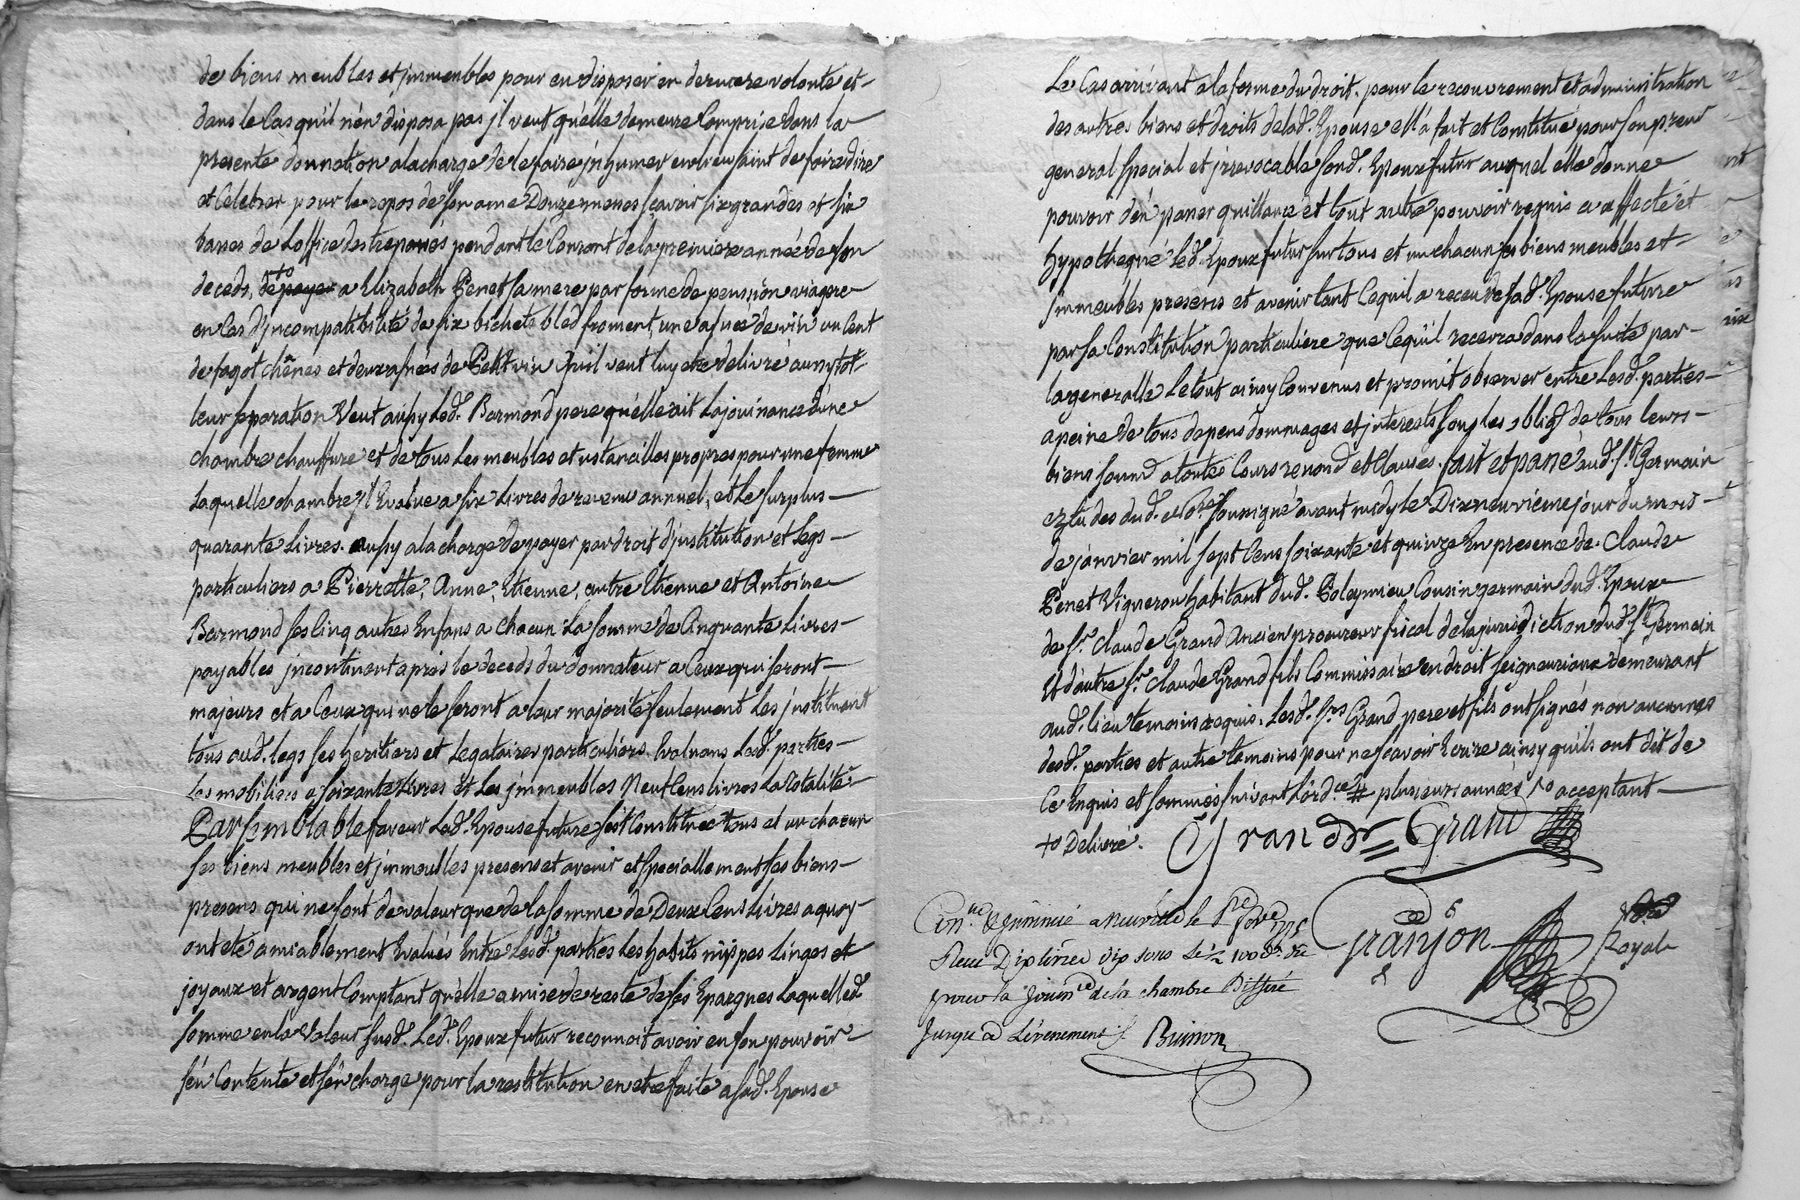 de biens meubles et jmmeubles pour en disposer en derniere volonte et
dans le Cas qu'il n'en disposa pas jl veut qu'elle demeure Comprise dans la
presente donnation a la charge de le faire jnhumer en lieu saint de faire dire
et Celebrer pour le repos de son ame Douze messes scavoir six grandes et six
basses de L'office des trepassés pendant le Courant de la premiere année de son
deceds, de payer +o a Elizabeth Penet sa mere par forme de pension viagere
en Cas d'jncompatibilité de six bichets bled froment, une asnée de vin un Cent
de fagot chênes et deux asnées de Petit vin qu'il veut luy etre delivré aussytôt
leur separation Veut aussy Led. Barmond pere qu'elle ait La jouissance d'une
chambre chauffure et de tous Les meubles et ustancilles propres pour une femme
Laquelle chambre jl Evalue a six Livres de revenu annuel, et Le surplus
quarante Livres. aussy a la charge de payer par droit d'jnstitution et Legs
particuliers a Pierrette, Anne, Etienne, autre Etienne et Antoine
Barmond ses Cinq autres Enfans a chacun La somme de Cinquante Livres
payables jncontinent apres le deceds du donnateur a Ceux qui seront
majeurs et a Ceux qui ne le seront a leur majorité seulement Les jnstituant
tous aud. legs ses heritiers et Legataires particuliers. Evaluans Lesd. parties
Les mobiliers a soixante Livres Et Les jmmeubles Neuf Cens livres La totalité
Par semblable faveur Lad. Epouse future s'est Constituée tous et un chacun
ses biens meubles et jmmeubles presens et avenir et specialement ses biens
presens qui ne sont de valeur que de la somme de Deux Cens Livres a quoy
ont eté amiablement Evalués Entre Lesd. parties Les habits nippes Linges et
joyaux et argent Comptant qu'elle a mise de reste de ses Epargnes Laquelle d.
somme en la Valeur susd. Led. Epoux futur reconnoit avoir en son pouvoir
s'en Contente et s'en charge pour La restitution en etre faite a sad. Epouse
Le Cas arrivant a la forme du droit. pour le recouvrement et administration
des autres biens et droits de lad. Epouse ell'a fait et Constitué pour son preur
general special et jrrevocable sond. Epoux futur auquel elle donne
pouvoir d'en passer quittance et tout autre pouvoir requis a affecté et
hypothequé Led. Epoux futur sur tous et un chacun ses biens meubles et
jmmeubles presens et avenir tant Ce qu'il a receu de sad. Epouse future
par sa Constitution particuliere que Ce qu'il recevra dans la suite par
la generalle Le tout ainsy Convenus et promit observer entre Lesd. parties
a peine de tous depens dommages et jnterests sous les oblig. de tous leurs
biens soumd a toutes Cours renond et Clauses. fait et passé aud. St. Germain
Etudes dud. No.re soussigné avant midy le Dixneuvieme jour du mois
de janvier mil sept Cens soixante et quinze En presence de Claude
Penet Vigneron habitant dud. Poleymieu Cousin germain dud. Epoux
de Sr. Claude Grand Ancien procureur fiscal de la jurisdiction dud. St. Germain
Et d'autre Sr. Claude Grand fils Commissaire en droit seigneuriaux demeurant
aud. lieu temoins requis. Lesd. Srs Grand pere et fils ont signés non aucunnes
desd. parties et autre temoins pour ne scavoir Ecrire ainsy qu'ils ont dit de
Ce Enquis et sommés suivant L'ord.ce # plusieurs années +o acceptant
+o Delivré. Grand Grand
Con.lé & Jnsinué a Neuville le
Receu Dix livres dix sous
pour la Jouiss.ce de la chambre Differé
Jusqu'a L'évenement /. Buisson
Granjon
Royal